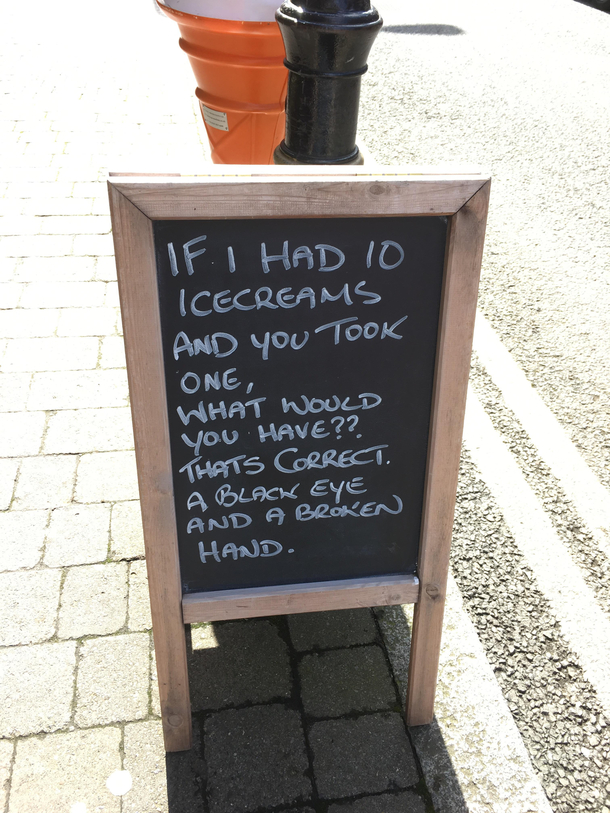 IF I HAD 10
ICECREAMS
AND YOU TOOK
ONE,
WHAT WOULD
YOU HAVE??
THATS CORRECT.
A BLACK EYE
AND A BROKEN
HAND.